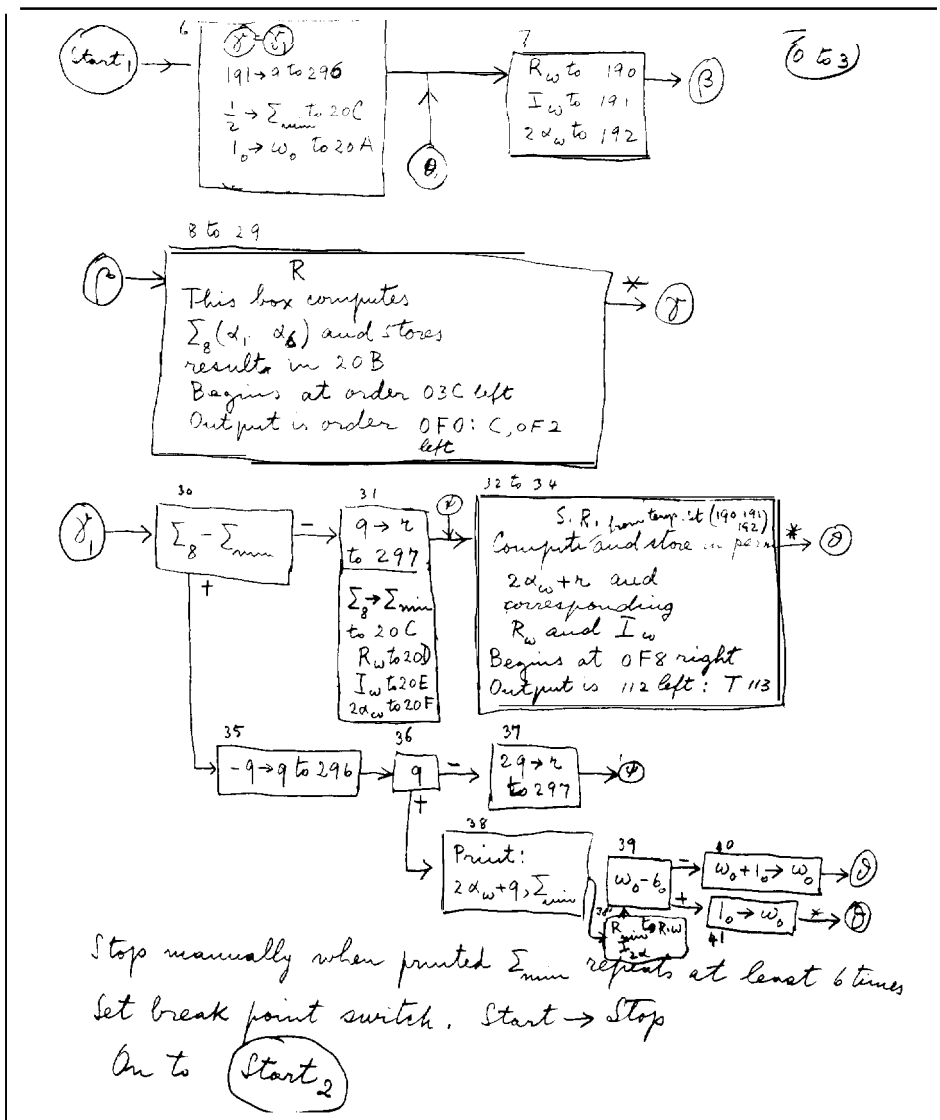 Start₁
6
γ = γ₁
191 → q to 296
½ → Σmin to 20C
1₀ → ω₀ to 20A
θ
7
Rω to 190
Iω to 191
2αω to 192
β
(0 to 3)
8 to 29
β
R
This box computes
Σ₈(α₁ α₆) and stores
results in 20B
Begins at order 03C left
Output is order 0F0: C, 0F2
left
*
γ
γ₁
30
Σ₈ - Σmin
-
+
31
q → r
to 297
Σ₈ → Σmin
to 20C
Rω to 20D
Iω to 20E
2αω to 20F
32 to 34
S.R. from temp. st (190 191
192)
Compute and store in perm
2αω + r and
corresponding
Rω and Iω
Begins at 0F8 right
Output is 112 left: T 113
*
35
-q → q to 296
36
q
-
+
37
2q → r
to 297
ψ
38
Print:
2αω + q, Σmin
39
ω₀ - 6₀
-
+
40
ω₀ + 1₀ → ω₀
41
1₀ → ω₀
*
θ
Stop manually when printed Σmin repeats at least 6 times
Set break point switch. Start → Stop
On to Start₂